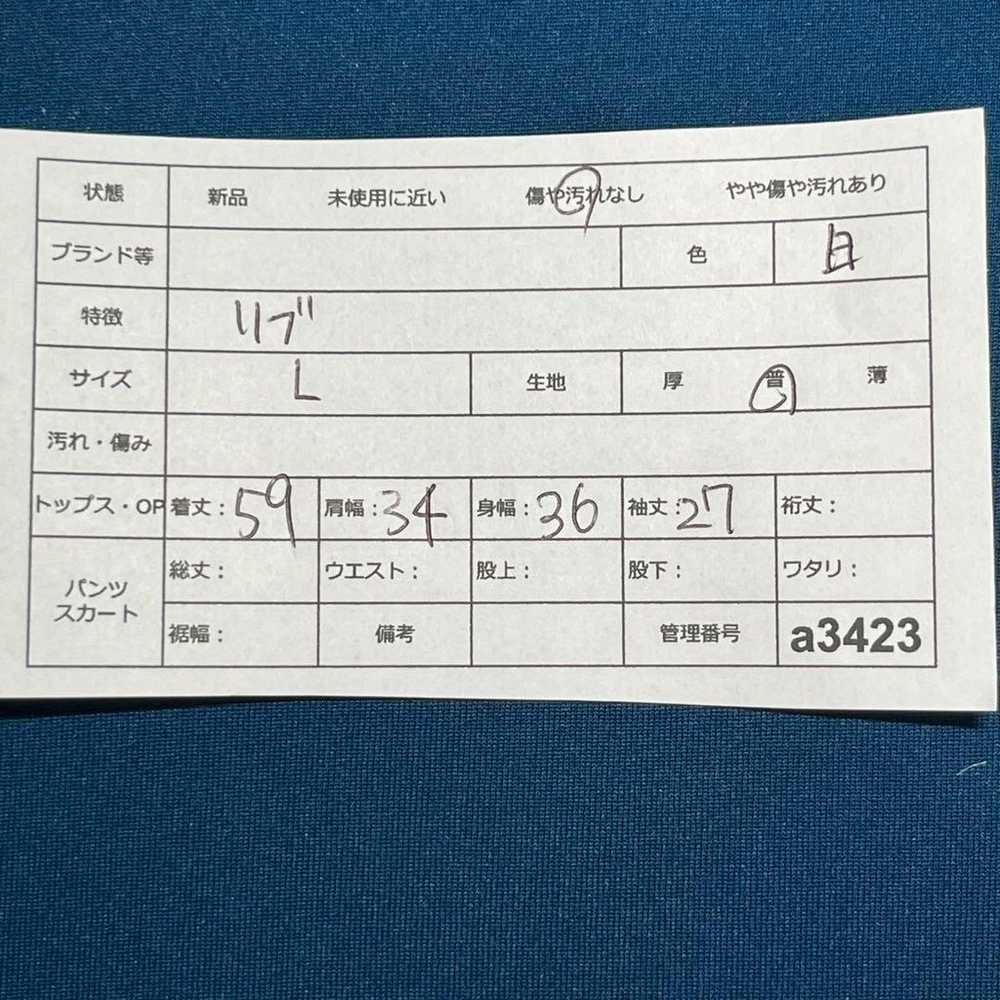 状態 新品 未使用に近い 傷や汚れなし やや傷や汚れあり
ブランド等 色 白
特徴 リブ
サイズ L 生地 厚 普 薄
汚れ・傷み
トップス・OP 着丈：59 肩幅：34 身幅：36 袖丈：27 裄丈：
パンツ 総丈： ウエスト： 股上： 股下： ワタリ：
スカート 裾幅： 備考 管理番号 a3423